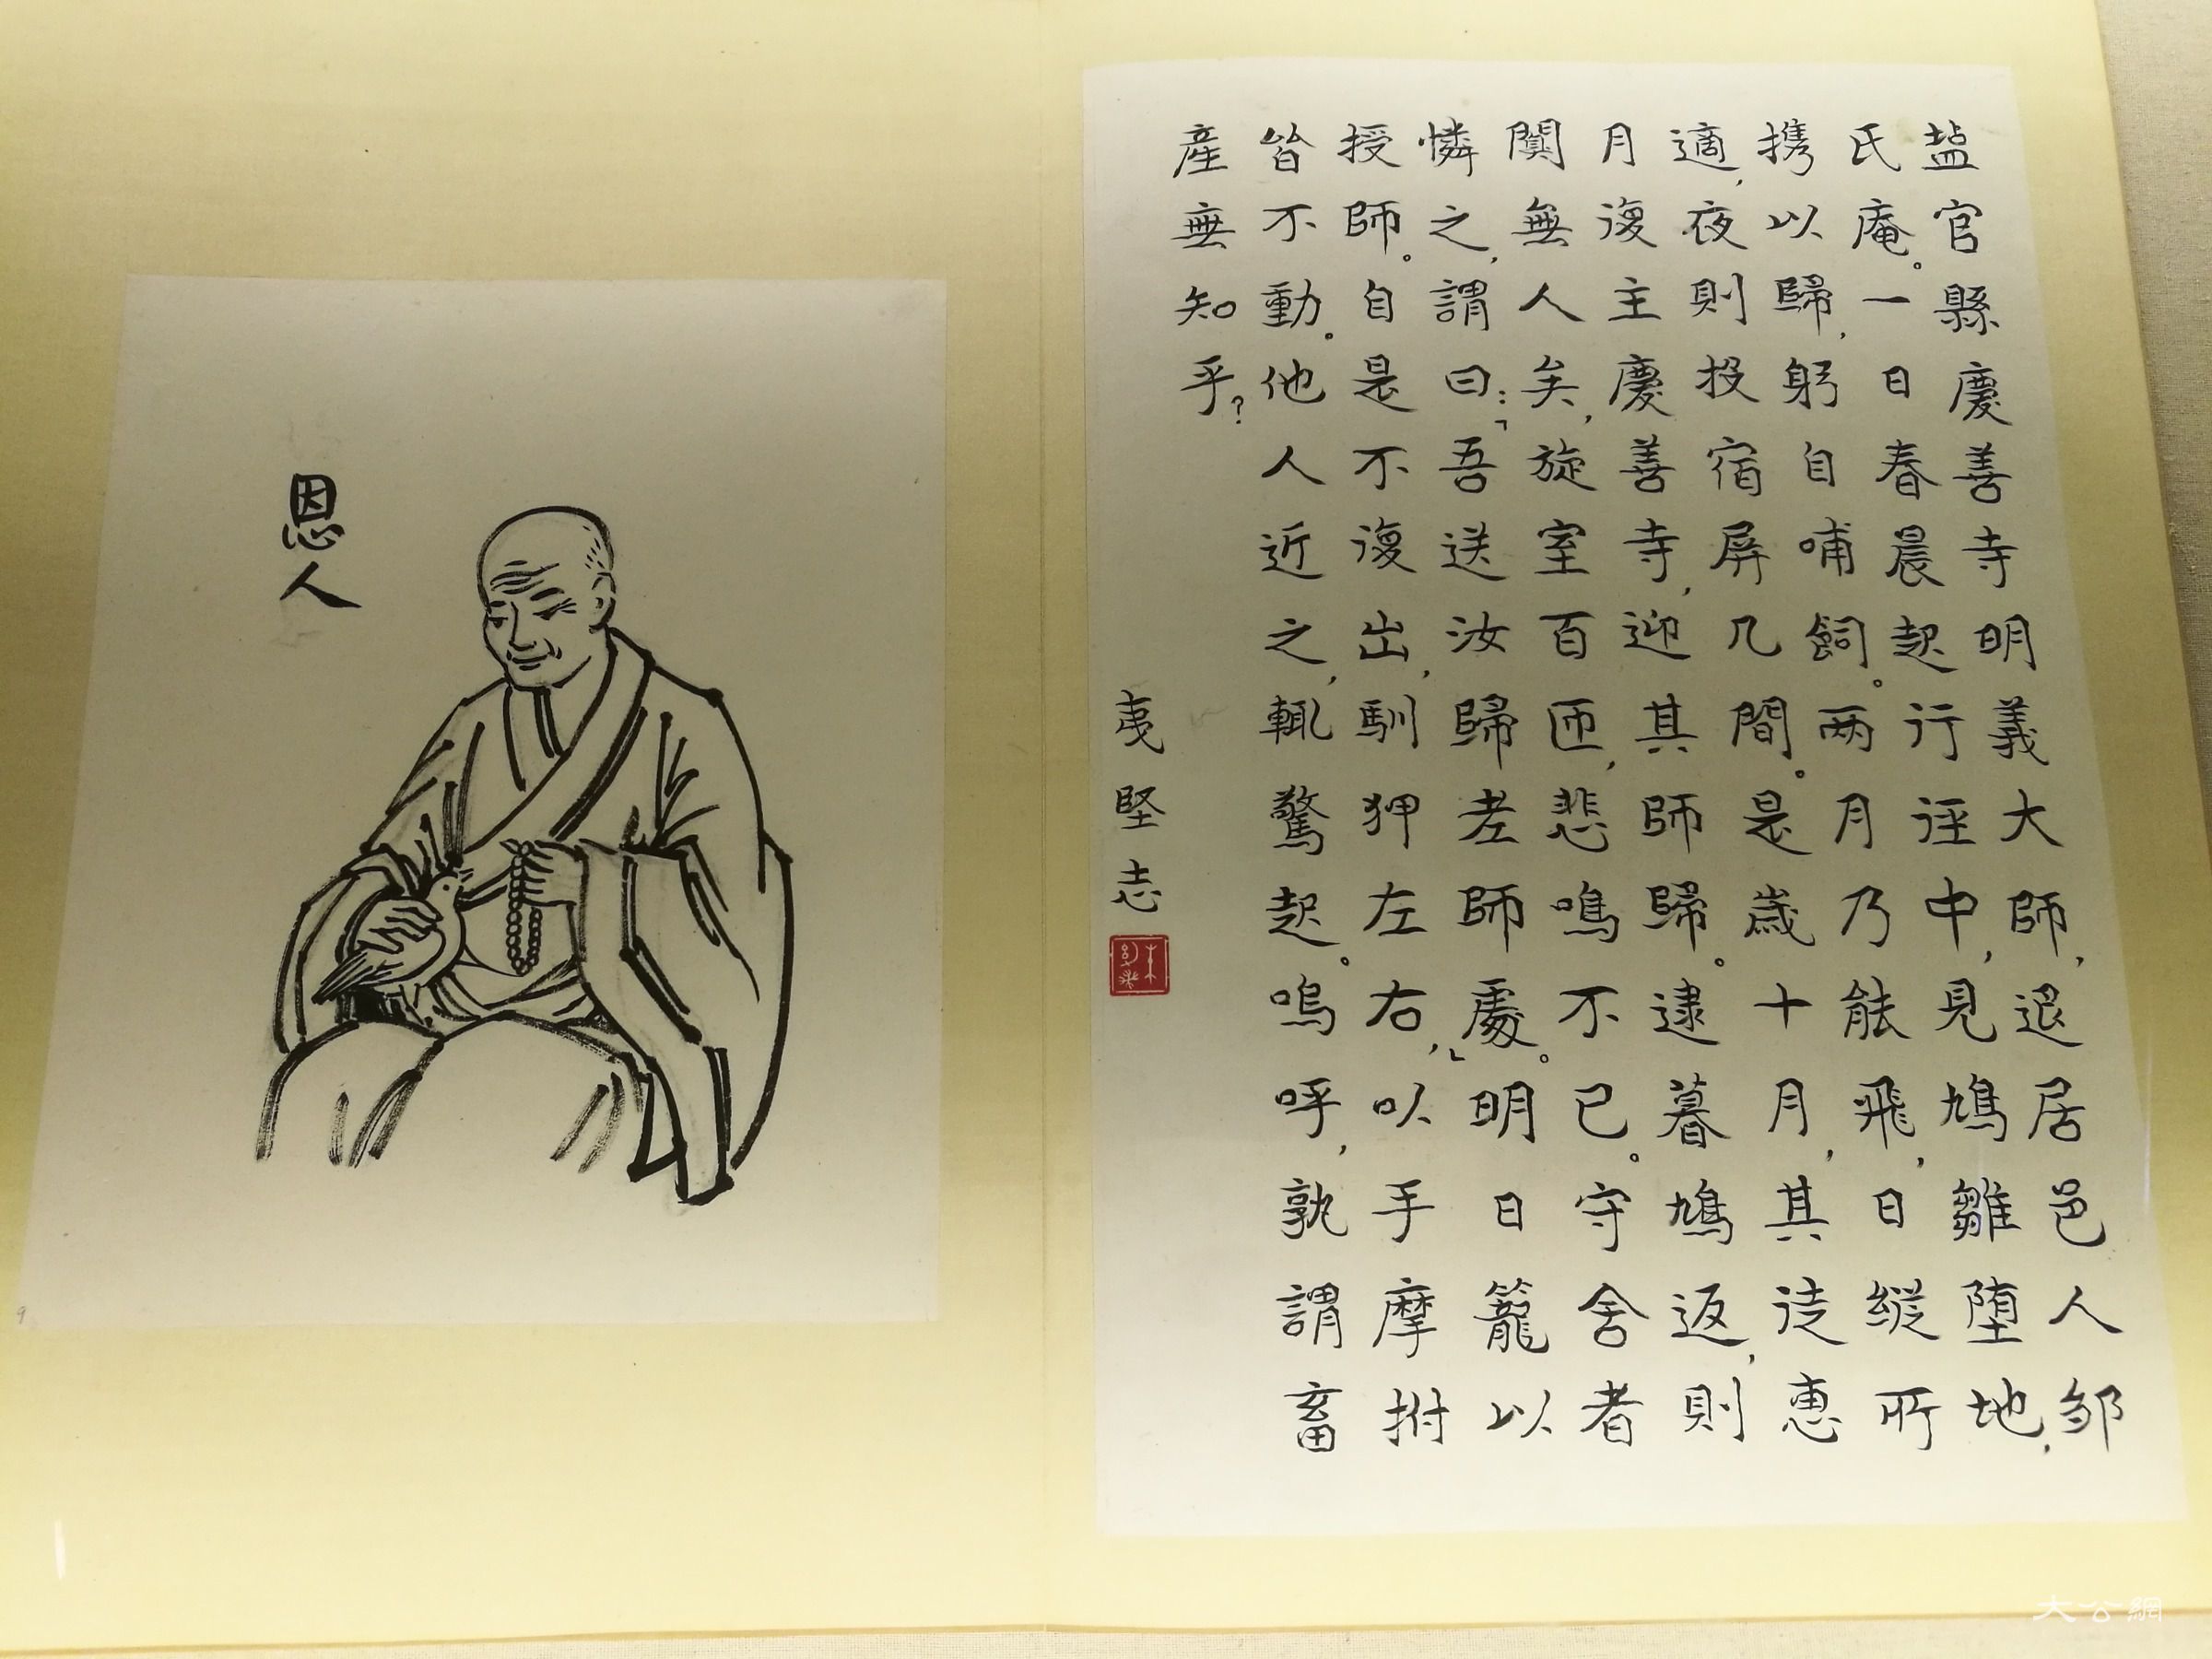 恩人
盐官縣慶善寺明義大師，退居邑人邹
氏庵。一日春晨起行逕中，見鳩雛堕地，
携以歸，躬自哺飼。两月乃能飛，日縱所
適，夜則投宿屏几間。是歳十月，其徒惠
月復主慶善寺，迎其師歸。逮暮鳩返，則
闃無人矣，旋室百匝，悲鳴不已。守舍者
憐之，謂曰：「吾送汝歸老師處。」明日籠以
授師。自是不復出，馴狎左右，以手摩拊
皆不動。他人近之，輒驚起。嗚呼，孰謂畜
産無知乎？
夷堅志
大公網